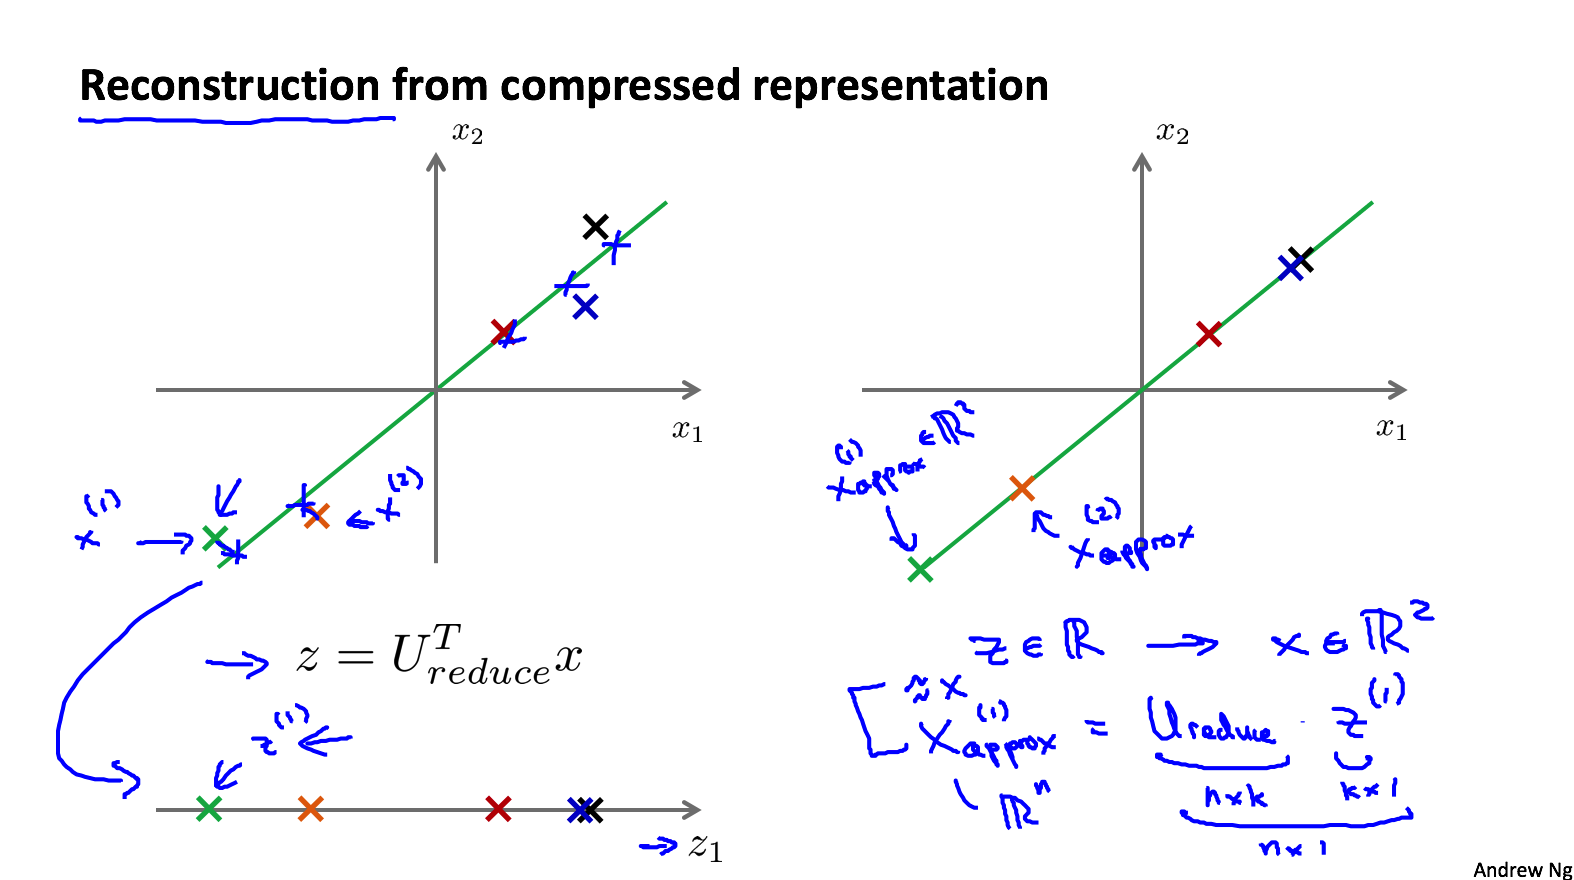 Reconstruction from compressed representation
x₂
x₁
x⁽¹⁾
x⁽²⁾
z = Uᵀreduce x
z⁽¹⁾
z₁
x₂
x₁
x⁽¹⁾approx ∈ ℝ²
x⁽²⁾approx
z ∈ ℝ → x ∈ ℝ²
≈ x
x⁽¹⁾approx = Ureduce · z⁽¹⁾
ℝⁿ
n×k
k×1
n×1
Andrew Ng